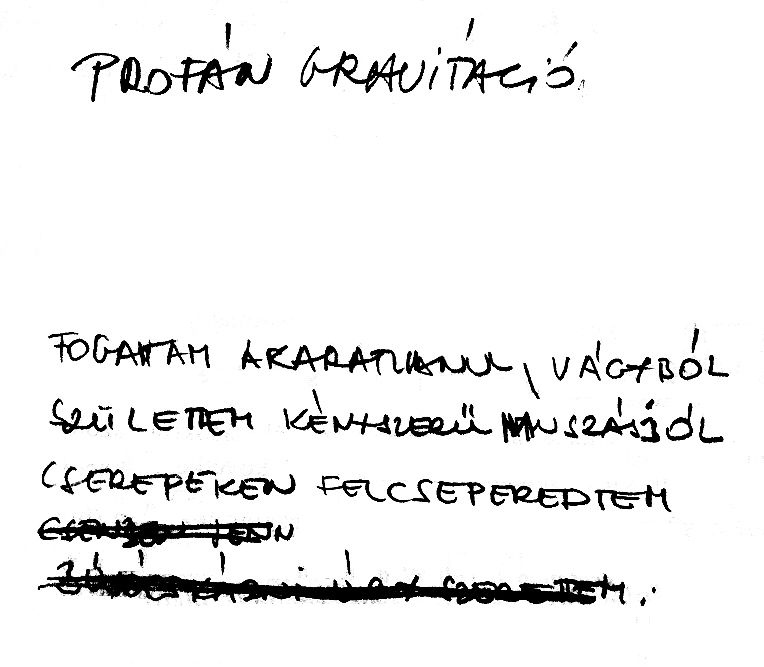 PROFÁN GRAVITÁCIÓ.
FOGANTAM AKARATLANUL, VÁGYBÓL
SZÜLETTEM KÉNYSZERŰ MUSZÁJBÓL
CSEREPEKEN FELCSEPEREDTEM